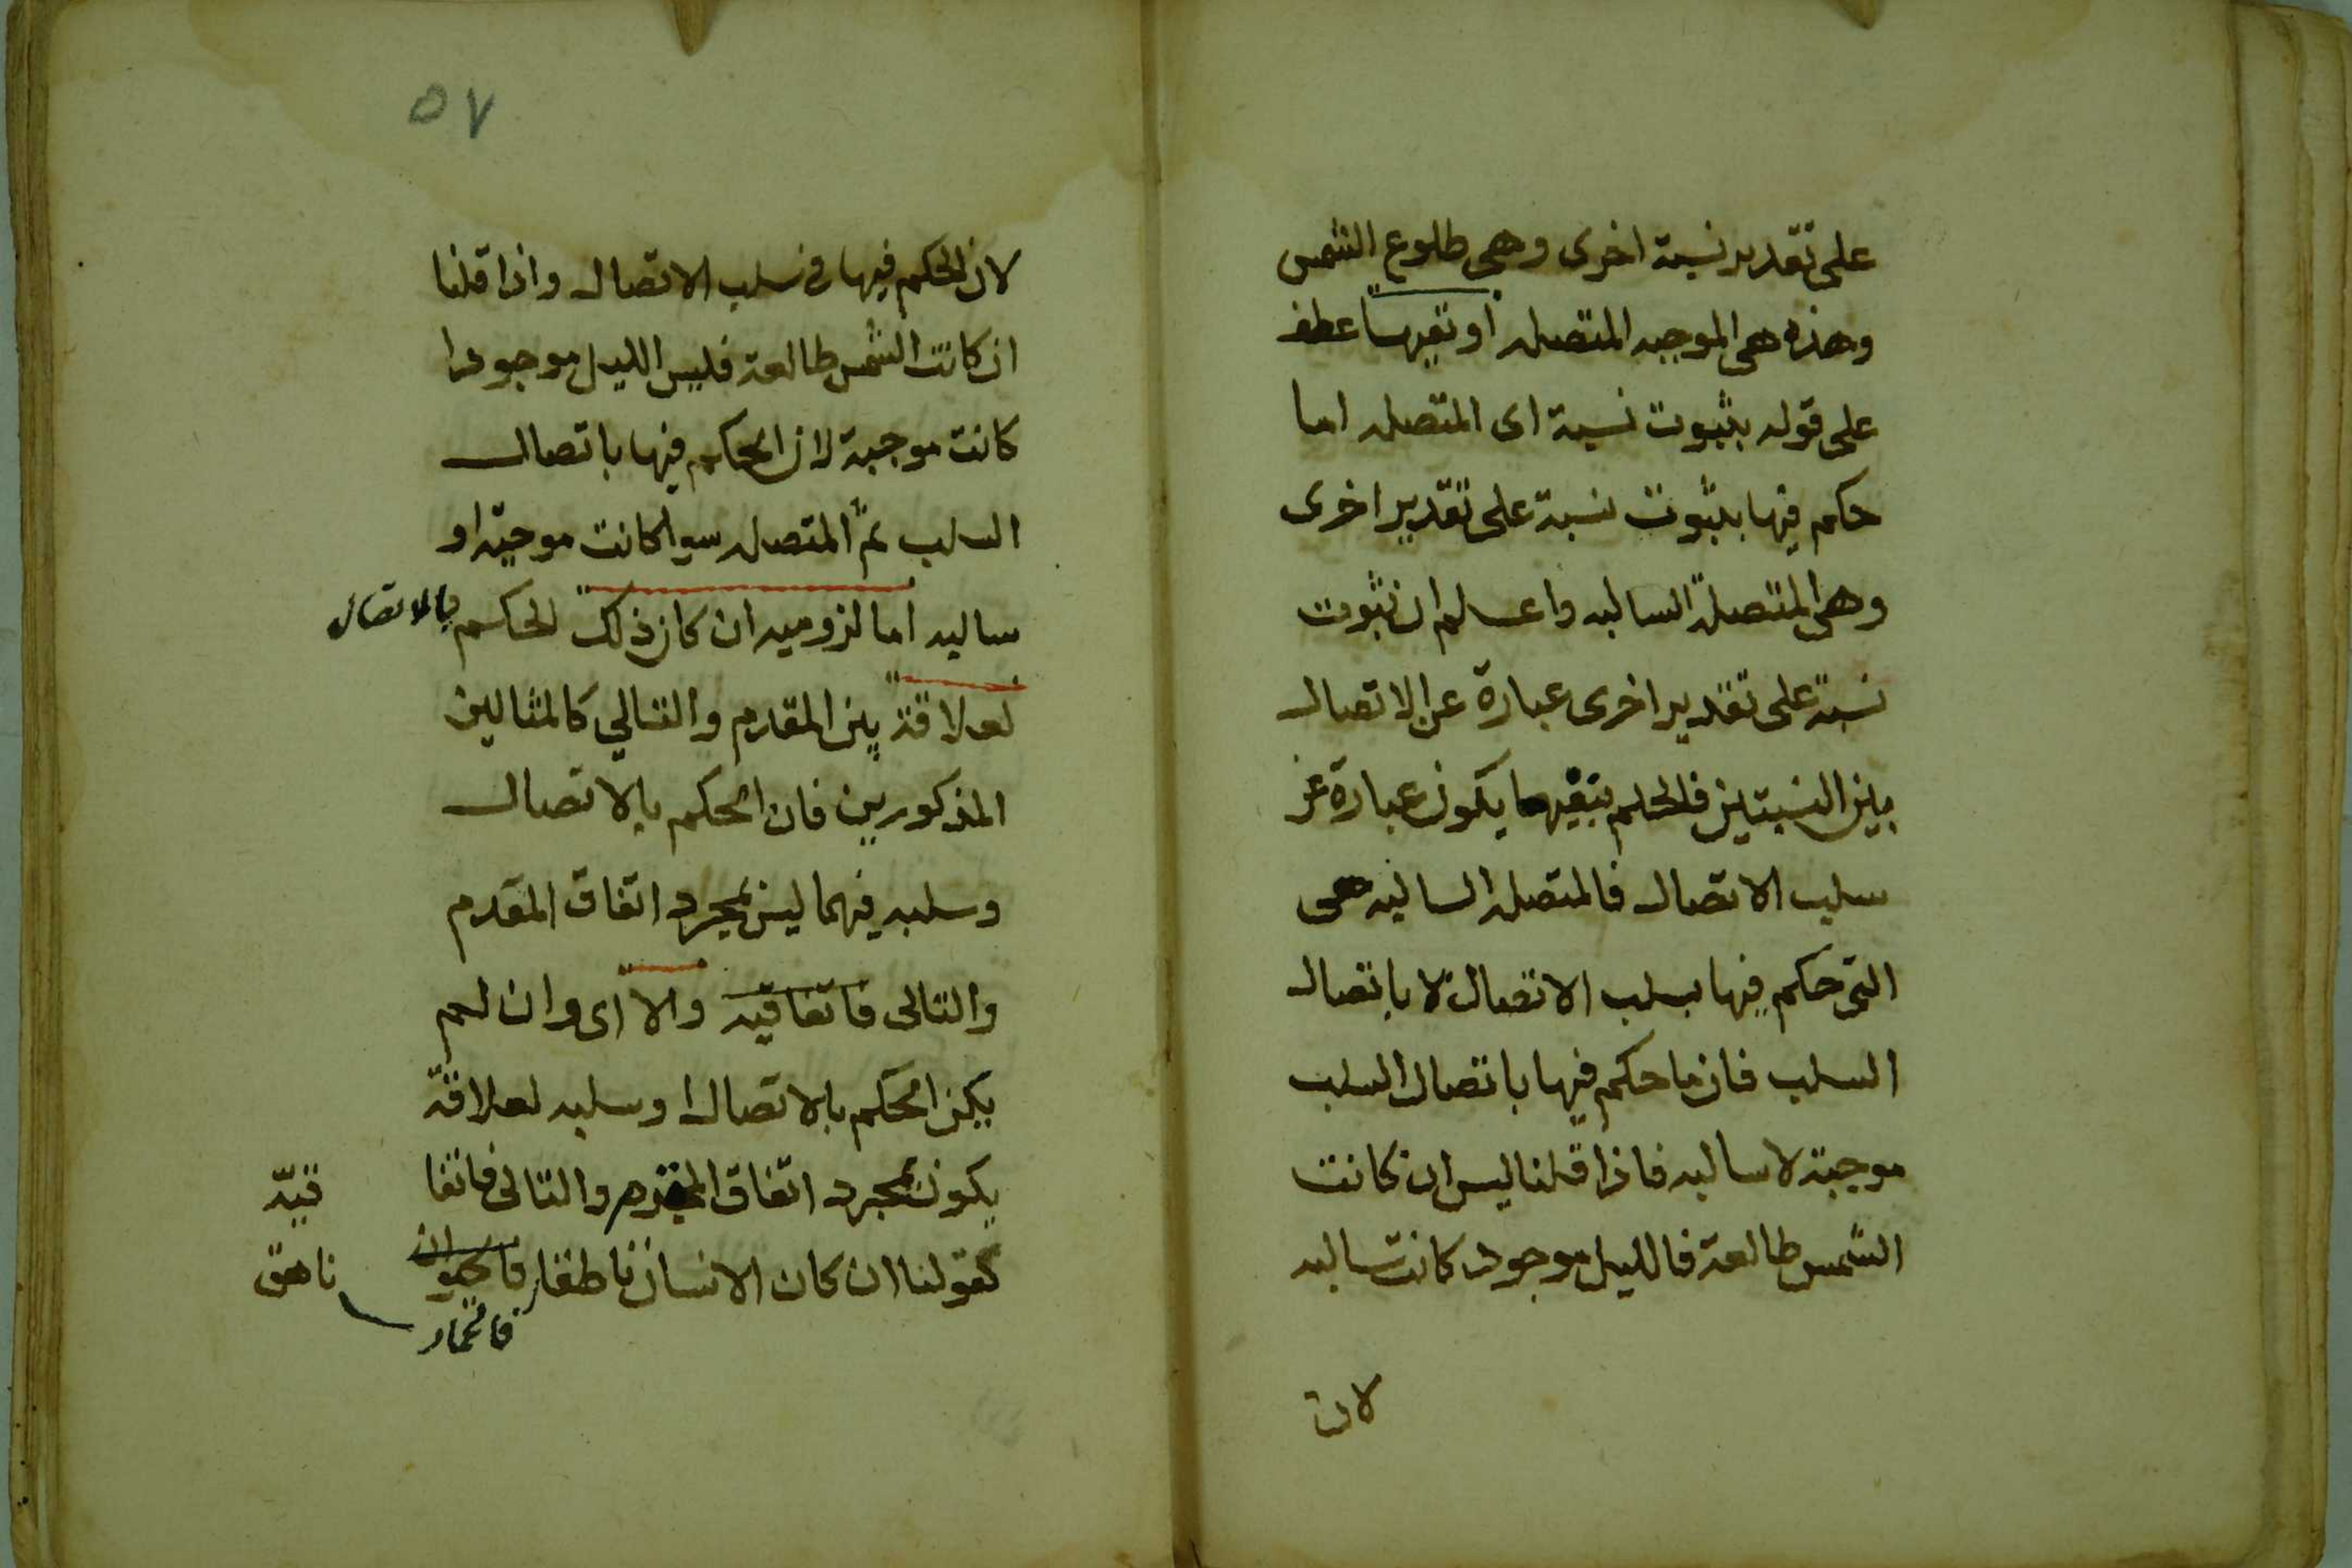 على تقدير نسبة اخرى وهى طلوع الشمس
وهذه هى الموجبه المتصله او نفيها عطف
على قوله بثبوت نسبة اى المتصله اما
حكم فيها بثبوت نسبة على تقدير اخرى
وهى المتصلة السالبه واعلم ان ثبوت
نسبة على تقدير اخرى عبارة عن الاتصال
بين النسبتين فالحكم بنفيهما يكون عبارة عن
سلب الاتصال فالمتصله السالبه هى
التى حكم فيها بسلب الاتصال لا باتصال
السلب فان ما حكم فيها باتصال السلب
موجبة لا سالبه فاذا قلنا ليس ان كانت
الشمس طالعة فالليل موجود كانت سالبه
لان
٥٧
لان الحكم فيها فى سلب الاتصال واذا قلنا
ان كانت الشمس طالعة فليس الليل موجودا
كانت موجبة لان الحكم فيها باتصال
السلب ثم المتصله سواكانت موجبة او
سالبه اما لزوميه ان كان ذلك الحكم بالاتصال
لعلاقة بين المقدم والتالي كالمثالين
المذكورين فان الحكم بالاتصال
وسلبه فيهما ليس بمجرد اتفاق المقدم
والتالى فاتفاقيه والا اى وان لم
يكن الحكم بالاتصال او سلبه لعلاقة
يكون بمجرد اتفاق المقدم والتالى فاتفا
قيّه
كقولنا ان كان الانسان ناطقا فالحيوان
فالحمار ناهق